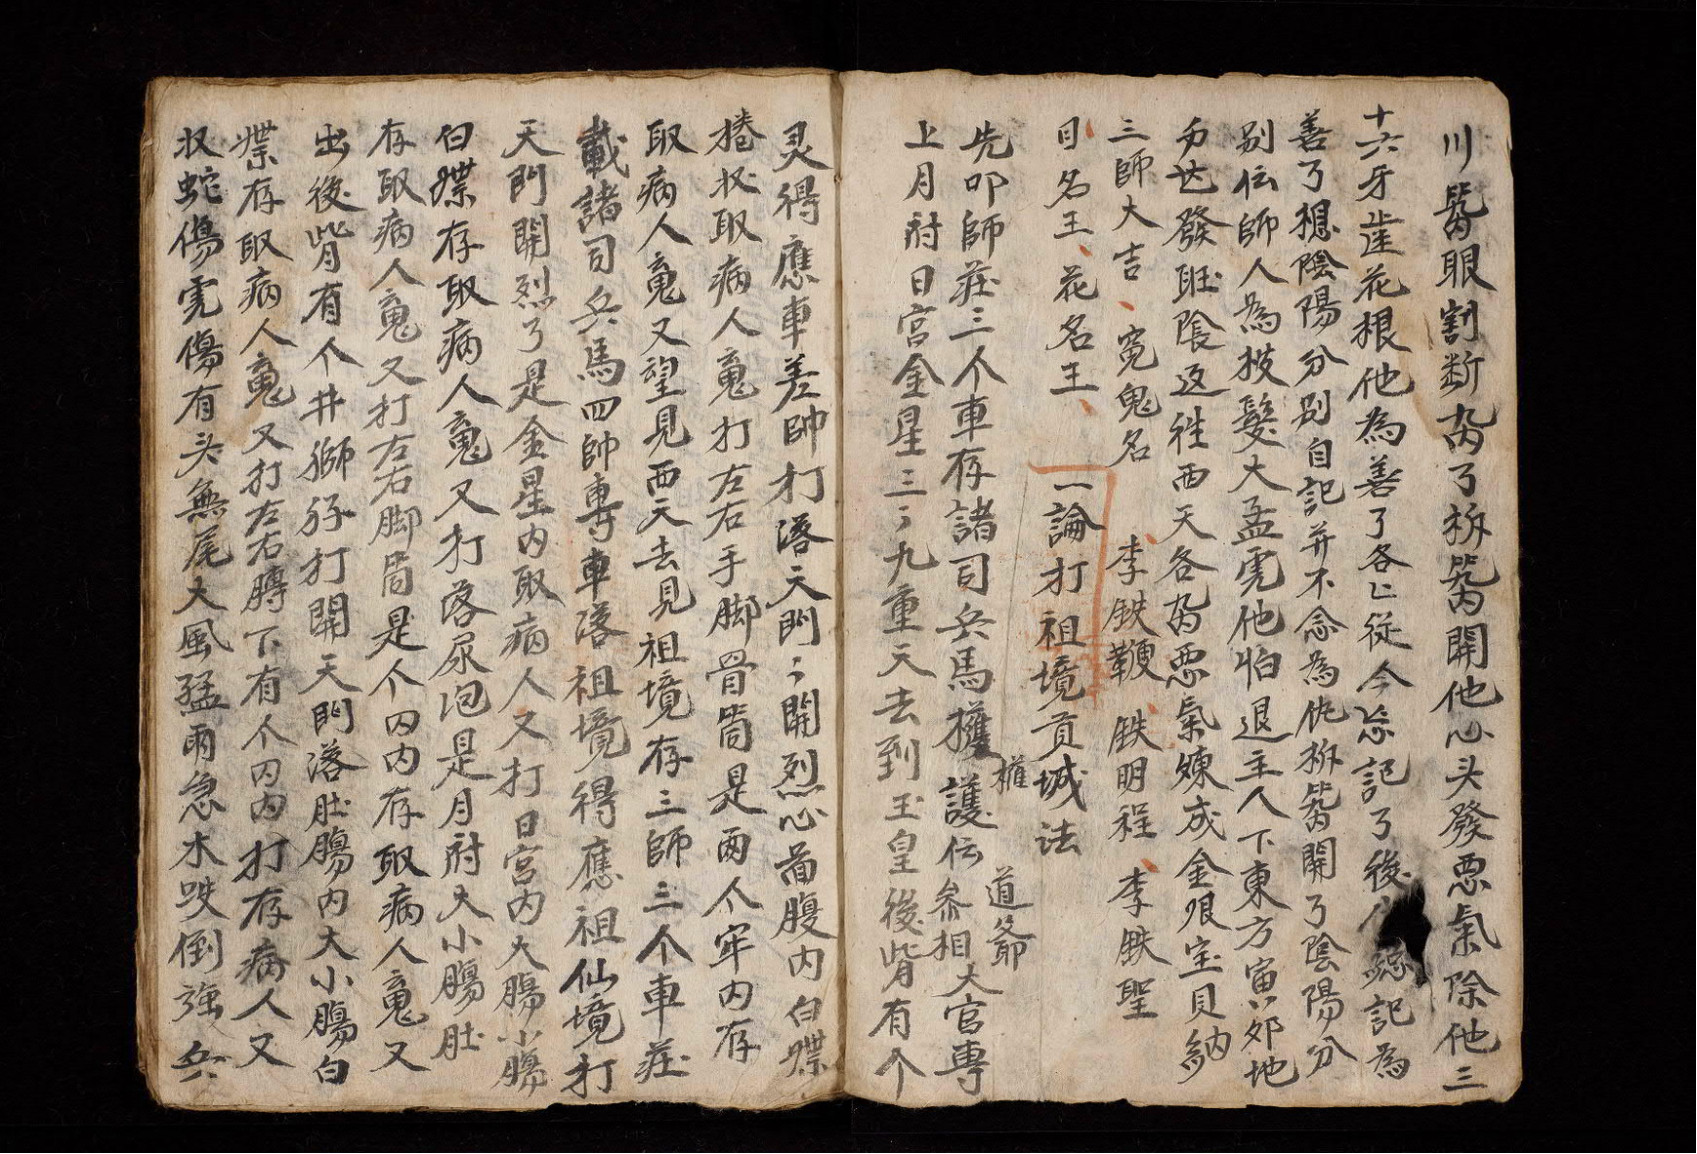 川眼割断了拆開他心头發悪氣除他三
十六牙歯花根他為善了各亡従今忘記了後記為
善了想陰陽分别自記并不念為仇拆開了陰陽分
别伝師人為披髮大孟虎他怕退主人下東方寅卯地
為世發陰返徃西天各悪氣煉成金艮宝貝納
三師大吉、冤鬼名 李鉄鞭、鉄明程、李鉄聖
目名王、花名王、
一論打祖境貢城法
先叩師莊三个車存諸司兵馬擁護伝叅相大官專
擁 道爺
上月府日宮金星三〻九重天去到玉皇後背有个
灵得應車差帥打落天門〻開烈心肚腹内白媒
捲状取病人魂打左右手脚骨筒是兩个牢内存
取病人魂又望見西天去見祖境存三師三个車莊
載諸司兵馬四帥專車落祖境得應祖仙境打
天門開烈了是金星内取病人又打日宮内大腸小腸
白媒存取病人魂又打落尿泡是月府大小腸肚
存取病人魂又打左右脚筒是个内存取病人魂又
出後背有个井獅孖打開天門落肚腸内大小腸白
媒存取病人魂又打左右膊下有个内打存病人又
収蛇傷虎傷有头無尾大風猛雨急木跌倒強兵